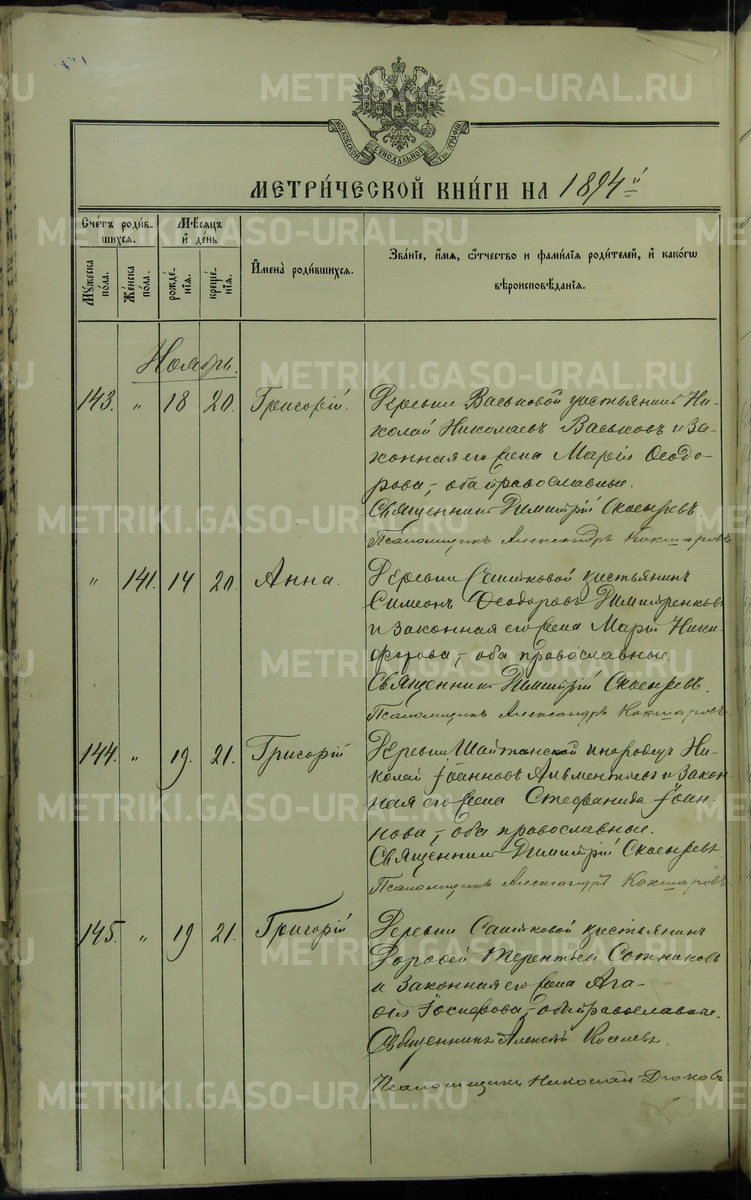 МОСКОВСКОЙ СѴНОДАЛЬНОЙ ТИПОГРАФІИ
МЕТРИ́ЧЕСКОЙ КНИ́ГИ НА 1894й
Сче́тъ роди́вшихся.
Мѣ́сяцъ и҆ де́нь
Му́жеска по́ла.
Же́нска по́ла.
рожде́нїя.
креще́нїя.
И҆мена̀ роди́вшихся.
Зва́нїе, и҆́мя, ѻ҆́тчество и҆ фами́лїя роди́телей, и҆ како́гѡ
вѣроисповѣ́данїя.
Ноябрь.
143. " 18 20. Григорій. Деревни Васьковой крестьянинъ Ни-
колай Николаевъ Васьковъ и за-
конная его жена Марія Ѳеодо-
рова, оба православные.
Священникъ Димитрій
Псаломщикъ Александръ Кокшаровъ
" 141. 14 20. Анна. Деревни крестьянинъ
Симеонъ Ѳеодоровъ
и законная его жена Марія Ники-
форова, оба православные.
Священникъ Димитрій
Псаломщикъ Александръ Кокшаровъ
144. " 19. 21. Григорій Деревни Шайтанской инородецъ Ни-
колай Іоанновъ и закон-
ная его жена Стефанида Іоан-
нова, оба православные.
Священникъ Димитрій
Псаломщикъ Александръ Кокшаровъ
145. " 19 21. Григорій Деревни крестьянинъ
Дорофей Терентьевъ Сотниковъ
и законная его жена Ага-
фія Іосифова, оба православные.
Священникъ Алексій
Псаломщикъ Николай
METRIKI.GASO-URAL.RU